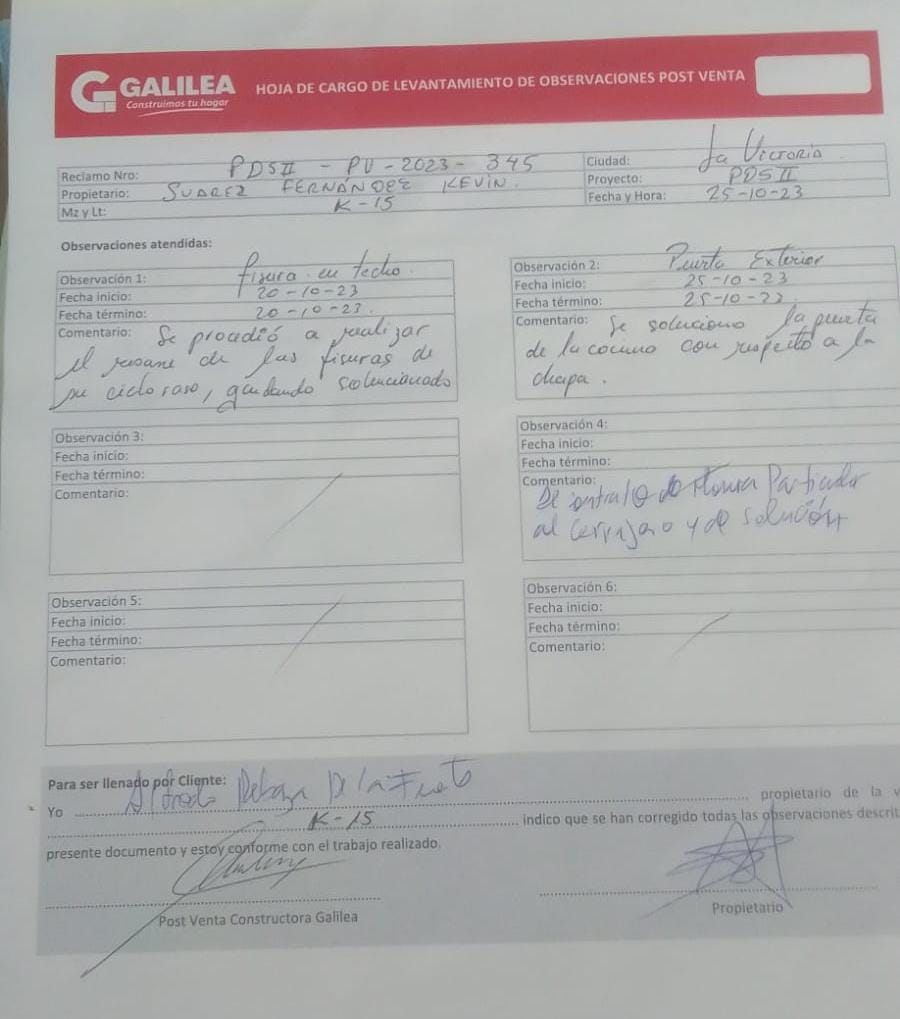 GALILEA
Construimos tu hogar
HOJA DE CARGO DE LEVANTAMIENTO DE OBSERVACIONES POST VENTA
Reclamo Nro: PDSII - PV - 2023 - 345
Ciudad: La Victoria
Propietario: SUAREZ FERNÁNDEZ KEVIN.
Proyecto: PDSII
Mz y Lt: K-15
Fecha y Hora: 25-10-23
Observaciones atendidas:
Observación 1: fisura en techo.
Fecha inicio: 20-10-23
Fecha término: 20-10-23.
Comentario: Se procedió a realizar
el resane de las fisuras de
su cielo raso, quedando solucionado
Observación 2: Puerta Exterior
Fecha inicio: 25-10-23
Fecha término: 25-10-23.
Comentario: Se soluciono la puerta
de la cocina con respecto a la
chapa.
Observación 3:
Fecha inicio:
Fecha término:
Comentario:
Observación 4:
Fecha inicio:
Fecha término:
Comentario:
Se contrató de Manera Particular
al cerrajero y dio solución
Observación 5:
Fecha inicio:
Fecha término:
Comentario:
Observación 6:
Fecha inicio:
Fecha término:
Comentario:
Para ser llenado por Cliente:
Yo Alfredo De la propietario de la v
K-15 indico que se han corregido todas las observaciones descrit
presente documento y estoy conforme con el trabajo realizado.
Post Venta Constructora Galilea
Propietario